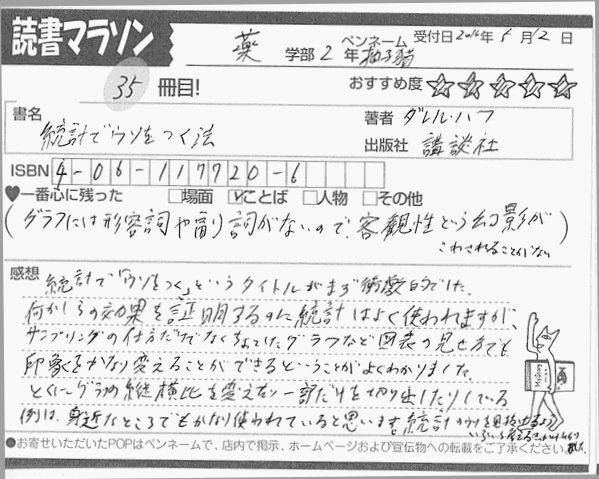 読書マラソン
薬 学部 2 年 ペンネーム 柚子猫 受付日 2016年 5月12日
35 冊目! おすすめ度 ☆☆☆☆☆
書名 統計でウソをつく法
著者 ダレル・ハフ
出版社 講談社
ISBN 4-06-117720-6
♥一番心に残った □場面 ☑ことば □人物 □その他
(グラフには形容詞や副詞がないので、客観性という幻影が
こわされることがない)
感想 統計で「ウソをつく」というタイトルがまず衝撃的でした。
何かしらの効果を証明するのに統計はよく使われますが、
サンプリングの仕方だけでなくちょっとしたグラフなど図表の見せ方でも
印象をかなり変えることができるということがよくわかりました。
とくにグラフの縦横比を変えたり一部だけを切り出したりしている
例は、身近なところでもかなり使われていると思います。統計のウソを見抜けるよう
●お寄せいただいたPOPはペンネームで、店内で掲示、ホームページおよび宣伝物への転載をご了承ください。